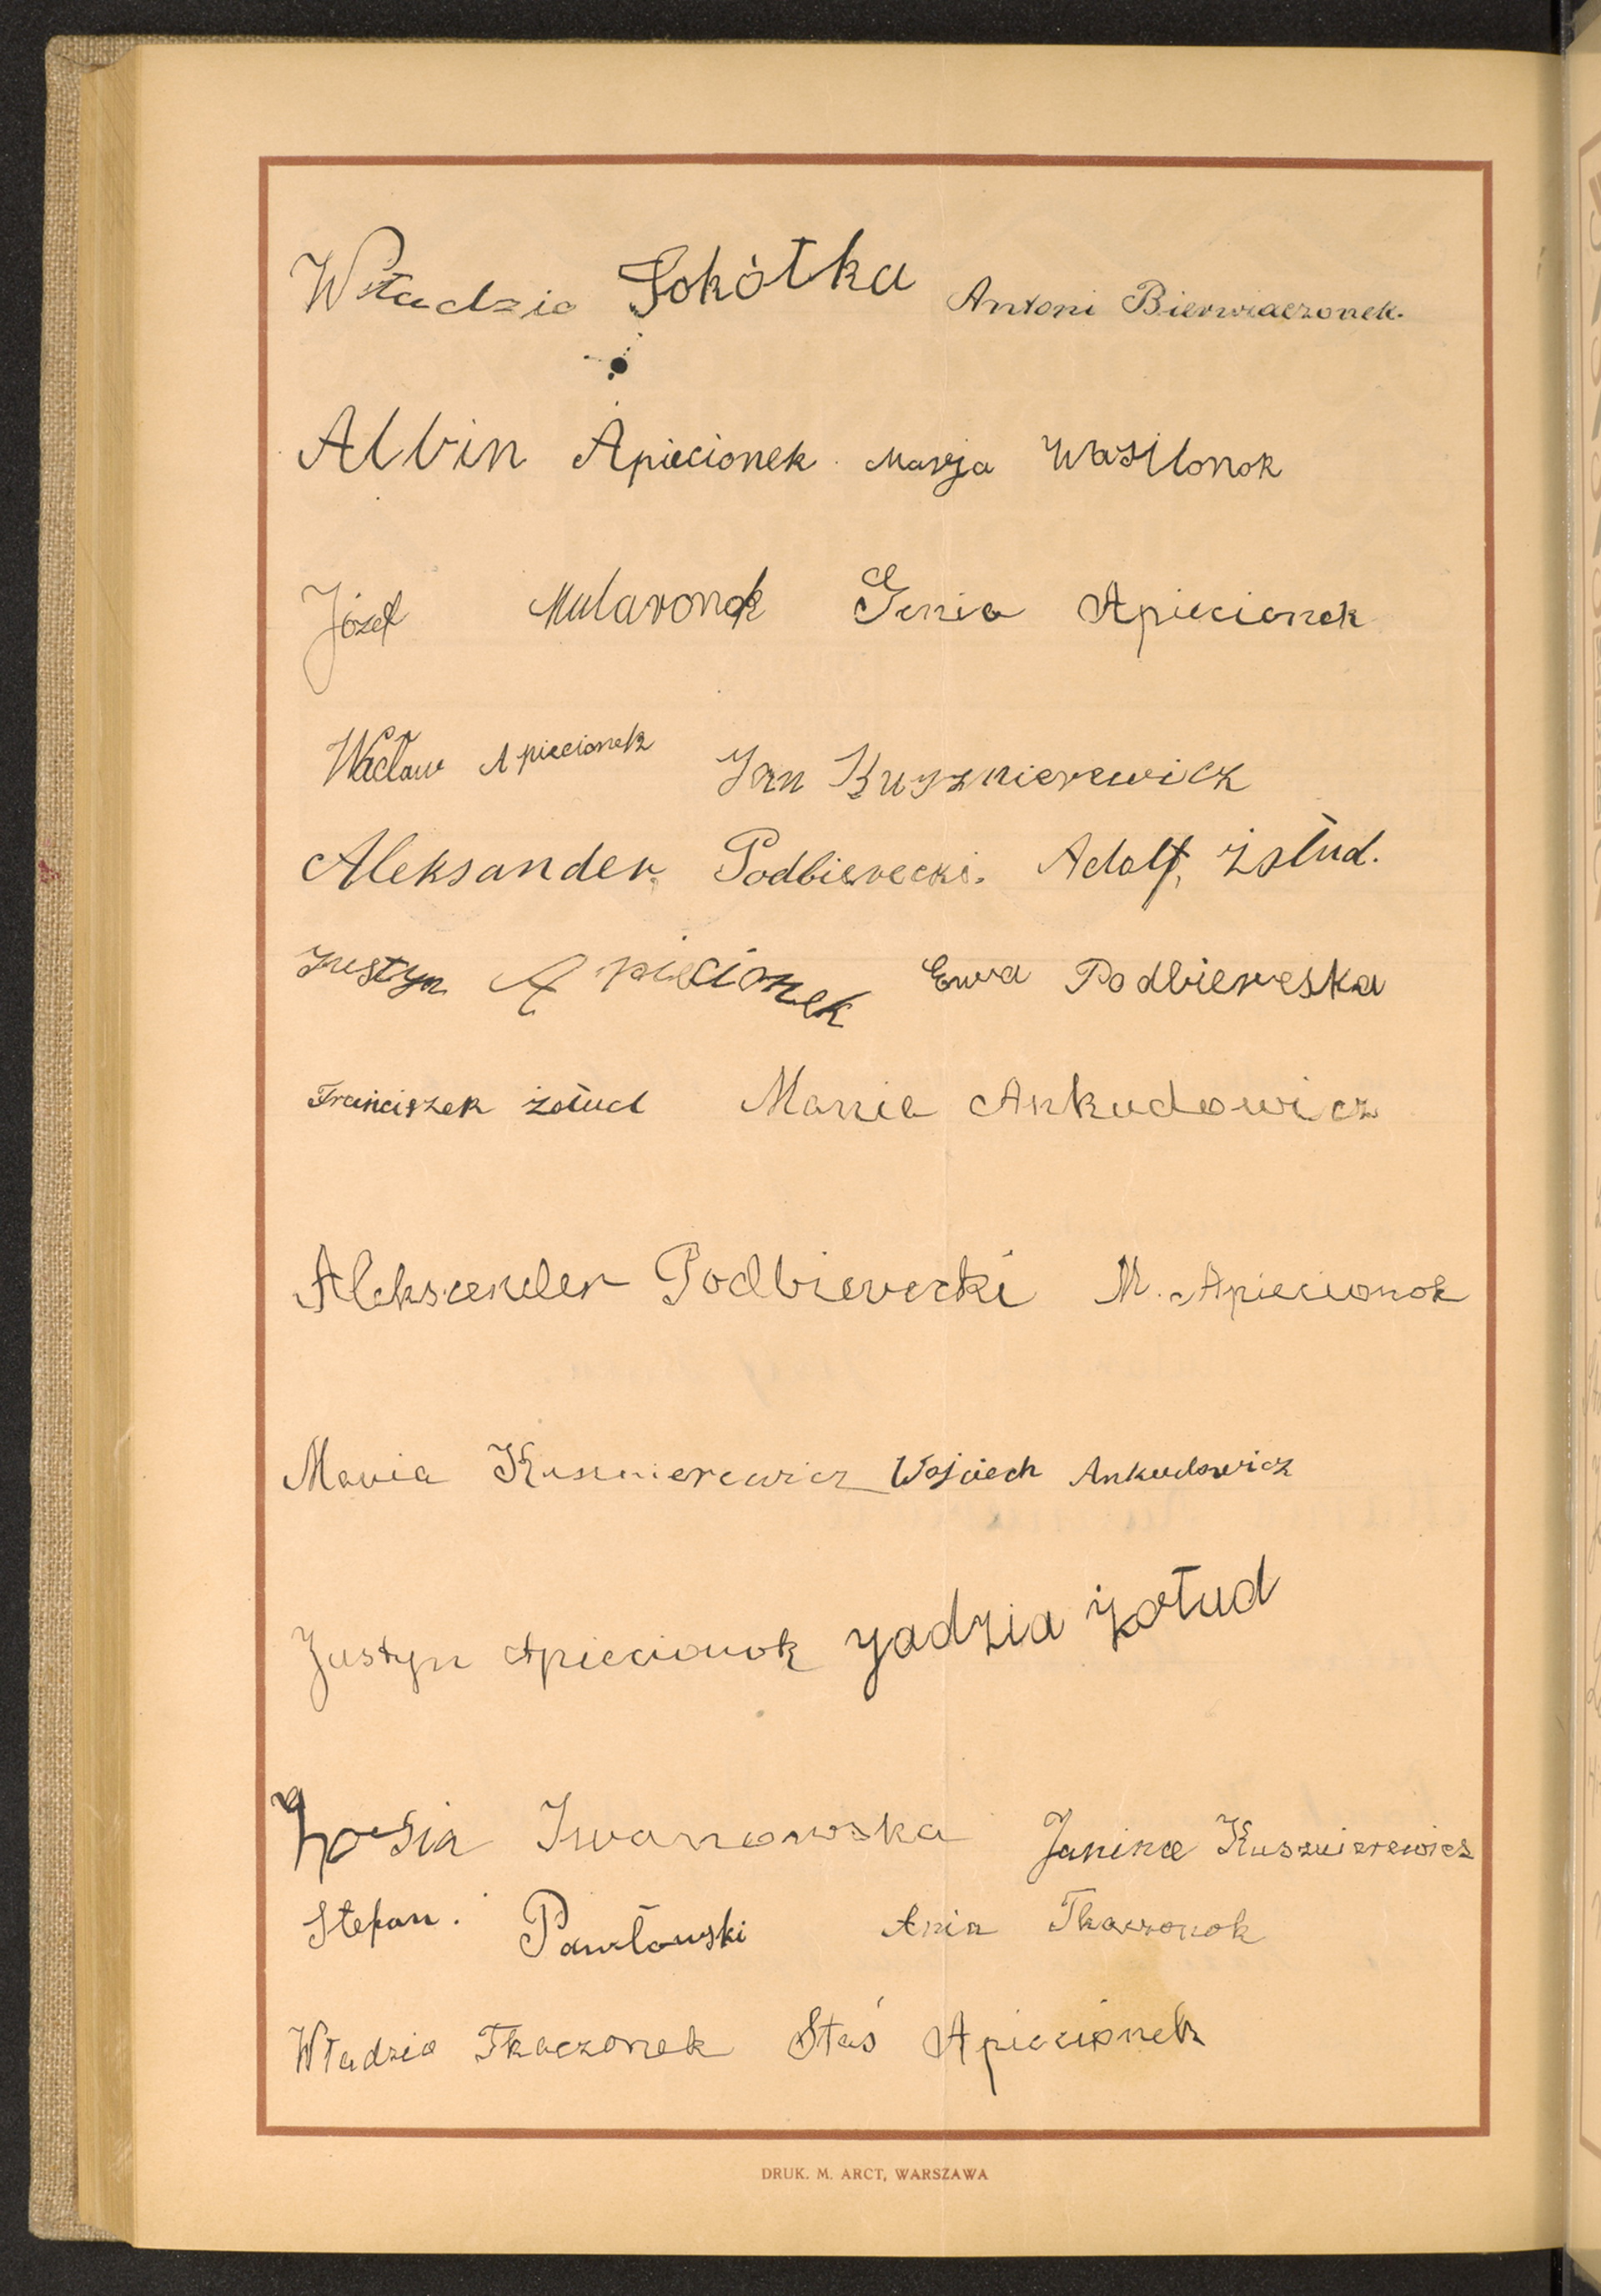 Władzia Sokółka Antoni Bierwiaczonek.
Albin Apiecionek Marja Wasilonok
Józef Mularonok Genia Apiecionek
Wacław Apiecionek Jan Kuyznierewicz
Aleksander Podbierecki. Adolf, Żołud.
Justyn Apiecionek Ewa Podbiereska
Franciszek Żołud Mania Ankudowicz
Aleksander Podbierecki M. Apiecionok
Maria Kusznierewicz Wojciech Ankudowicz
Justyn Apiecionok Jadzia Żołud
Zosia Iwanowska Janina Kusznierewicz
Stefan. Pawłowski Ania Tkaczonok
Władzia Tkaczonek Staś Apiecionek
DRUK. M. ARCT, WARSZAWA